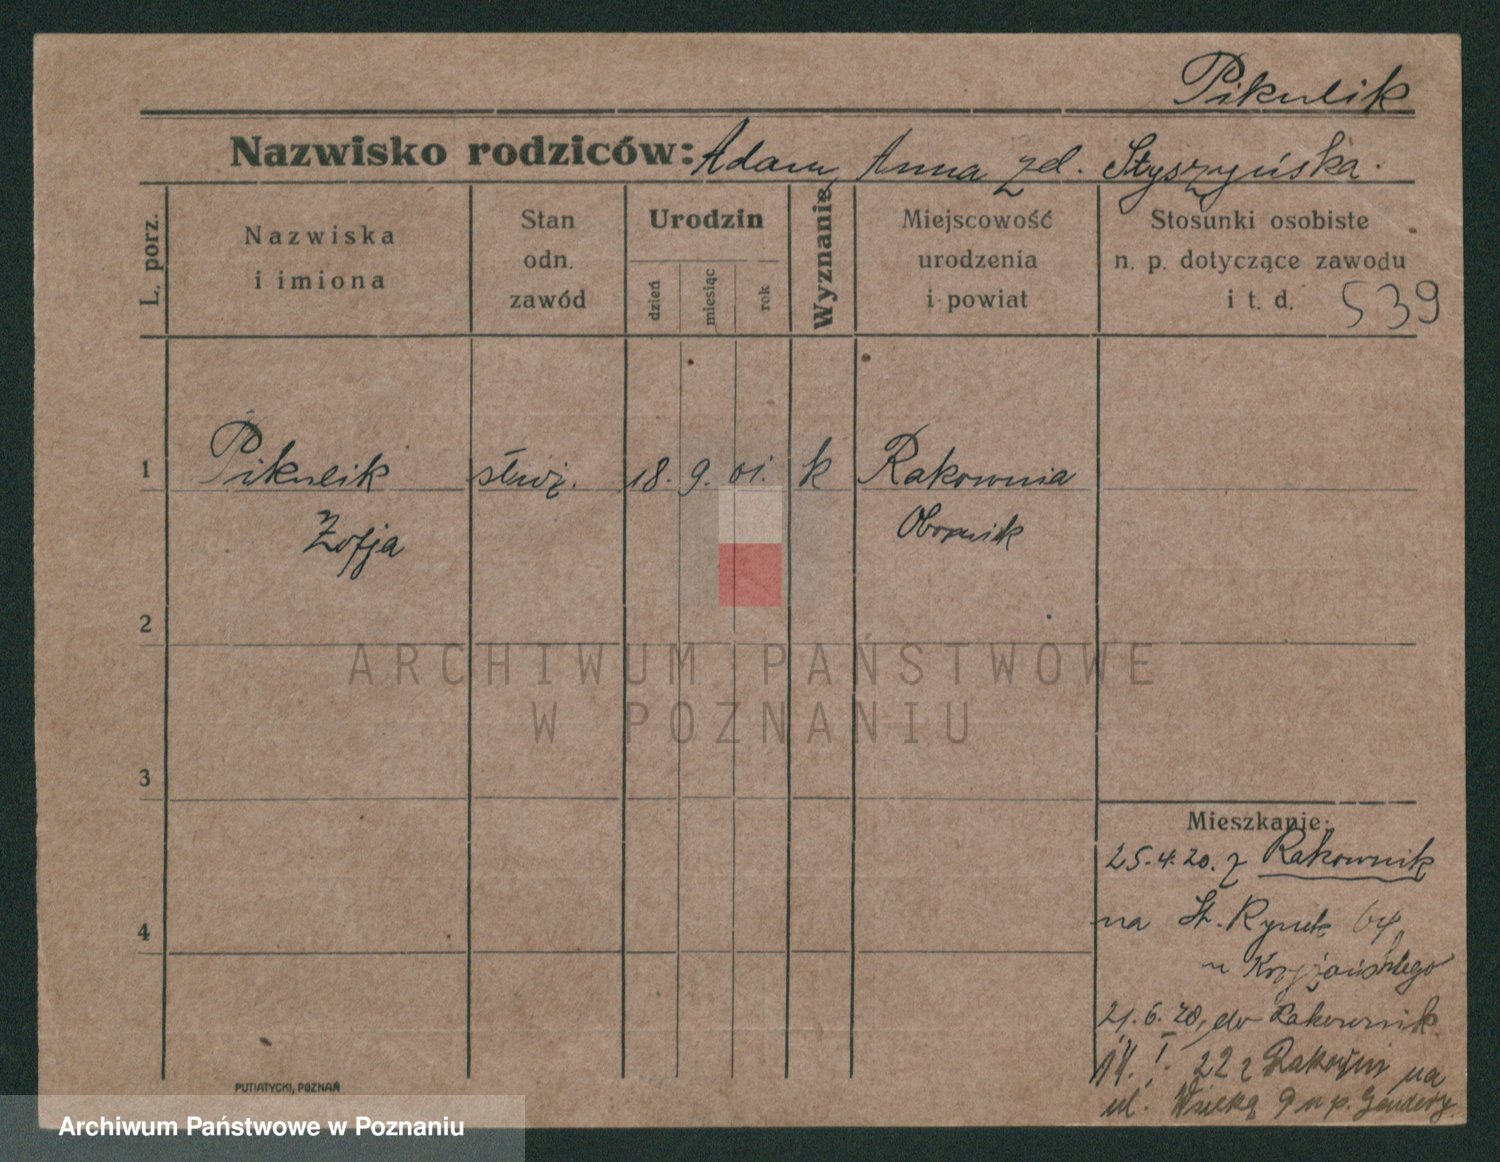 Pikulik
Nazwisko rodziców: Adam, Anna zd. Styszyńska.
L. porz.
Nazwiska
i imiona
Stan
odn.
zawód
Urodzin
dzień
miesiąc
rok
Wyznanie
Miejscowość
urodzenia
i powiat
Stosunki osobiste
n. p. dotyczące zawodu
i t. d.
539
1 Pikulik służ. 18. 9. 01. k Rakownia
Zofja Obornik
2
ARCHIWUM PAŃSTWOWE
W POZNANIU
3
Mieszkanie:
25.4.20. z Rakownik
4
na St. Rynek
u Krzyżańskiego
21.6.20, do Rakownik.
14. I. 22 z na
ul. Wielką 9 u p.
PUTIATYCKI, POZNAŃ
Archiwum Państwowe w Poznaniu